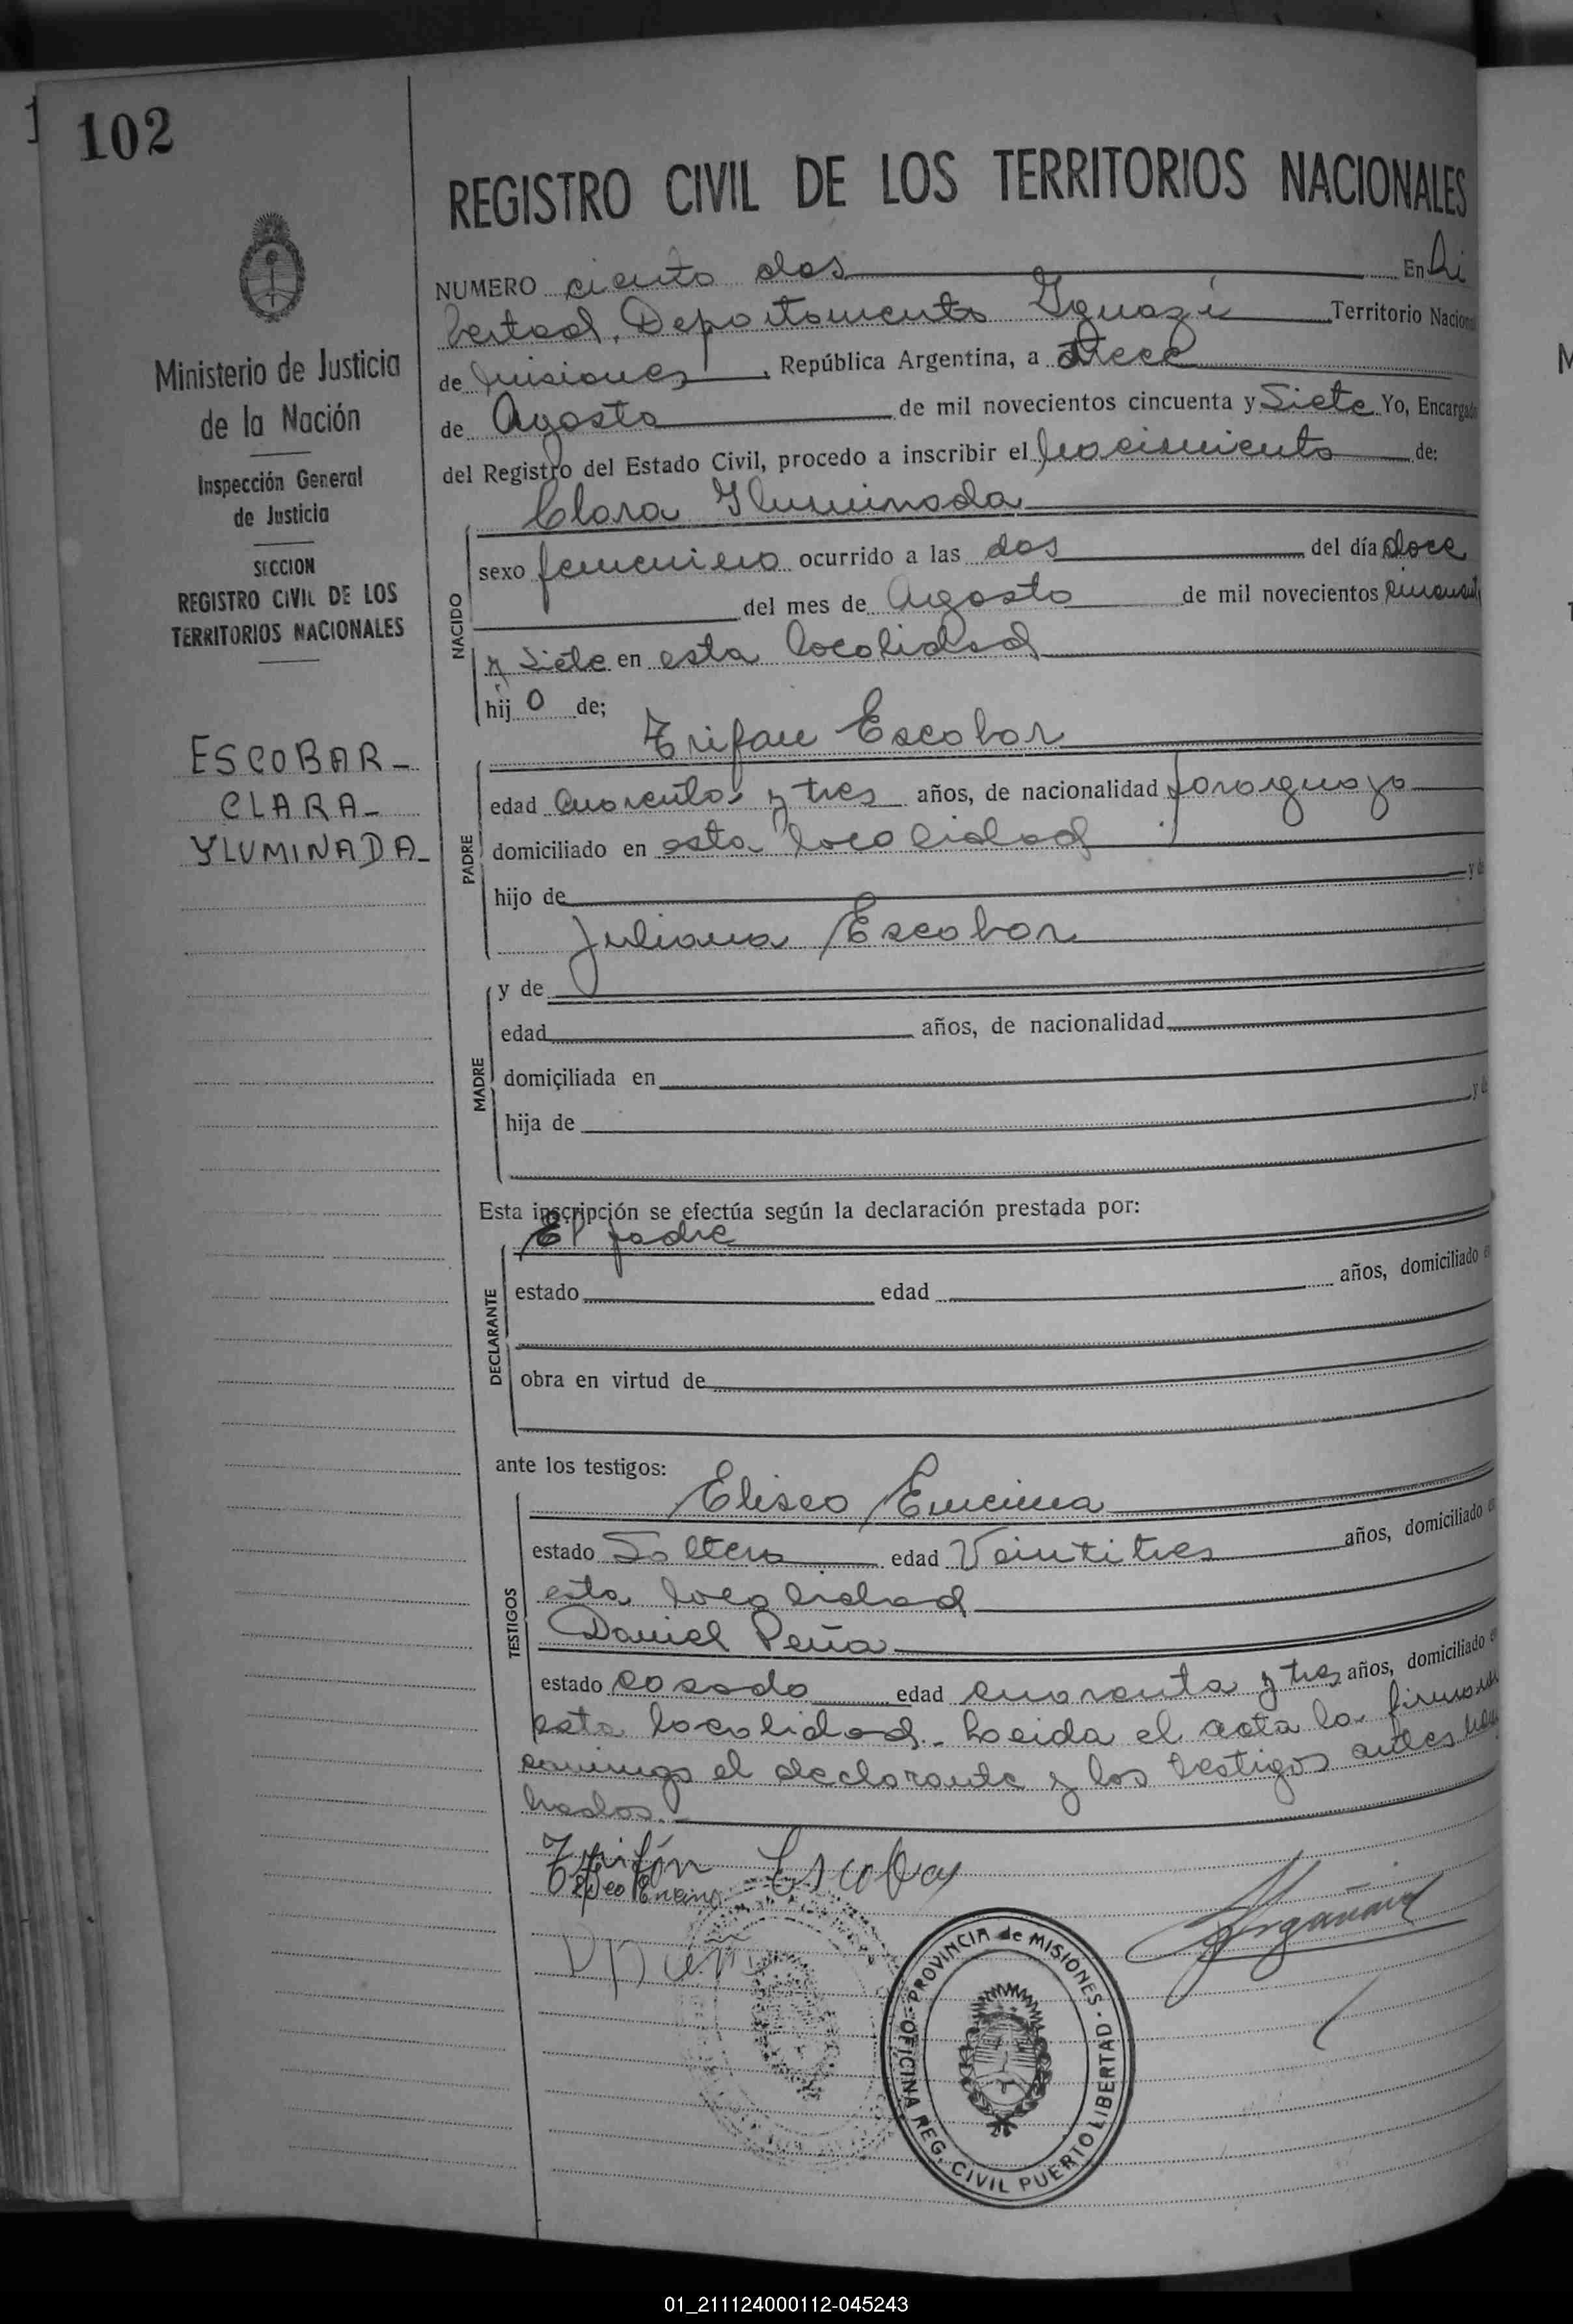 102
REGISTRO CIVIL DE LOS TERRITORIOS NACIONALES
Ministerio de Justicia
de la Nación
Inspección General
de Justicia
SECCION
REGISTRO CIVIL DE LOS
TERRITORIOS NACIONALES
ESCOBAR-
CLARA-
YLUMINADA-
NUMERO ciento dos En Li
bertad, Departamento Iguazú Territorio Nacional
de Misiones, República Argentina, a trece
de Agosto de mil novecientos cincuenta y Siete Yo, Encargado
del Registro del Estado Civil, procedo a inscribir el nacimiento de:
NACIDO
Clara Iluminada
sexo femenino ocurrido a las dos del día doce
del mes de Agosto de mil novecientos cincuenta
y Siete en esta localidad
hij o de;
PADRE
Trifon Escobar
edad cuarenta y tres años, de nacionalidad paraguayo
domiciliado en esta localidad
hijo de y de
Juliana Escobar
MADRE
y de
edad años, de nacionalidad
domiciliada en
hija de y de
Esta inscripción se efectúa según la declaración prestada por:
DECLARANTE
El padre
estado edad años, domiciliado en
obra en virtud de
ante los testigos:
TESTIGOS
Eliseo Encina
estado Soltero edad Veintitres años, domiciliado en
esta localidad
Daniel Peña
estado casado edad cuarenta y tres años, domiciliado en
esta localidad.- Leida el acta la firmaron
conmigo el declarante y los testigos antes nom
brados.
Trifón Escobar
Eliseo Encina
D Peña
PROVINCIA de MISIONES - OFICINA REG. CIVIL PUERTO LIBERTAD
01_211124000112-045243